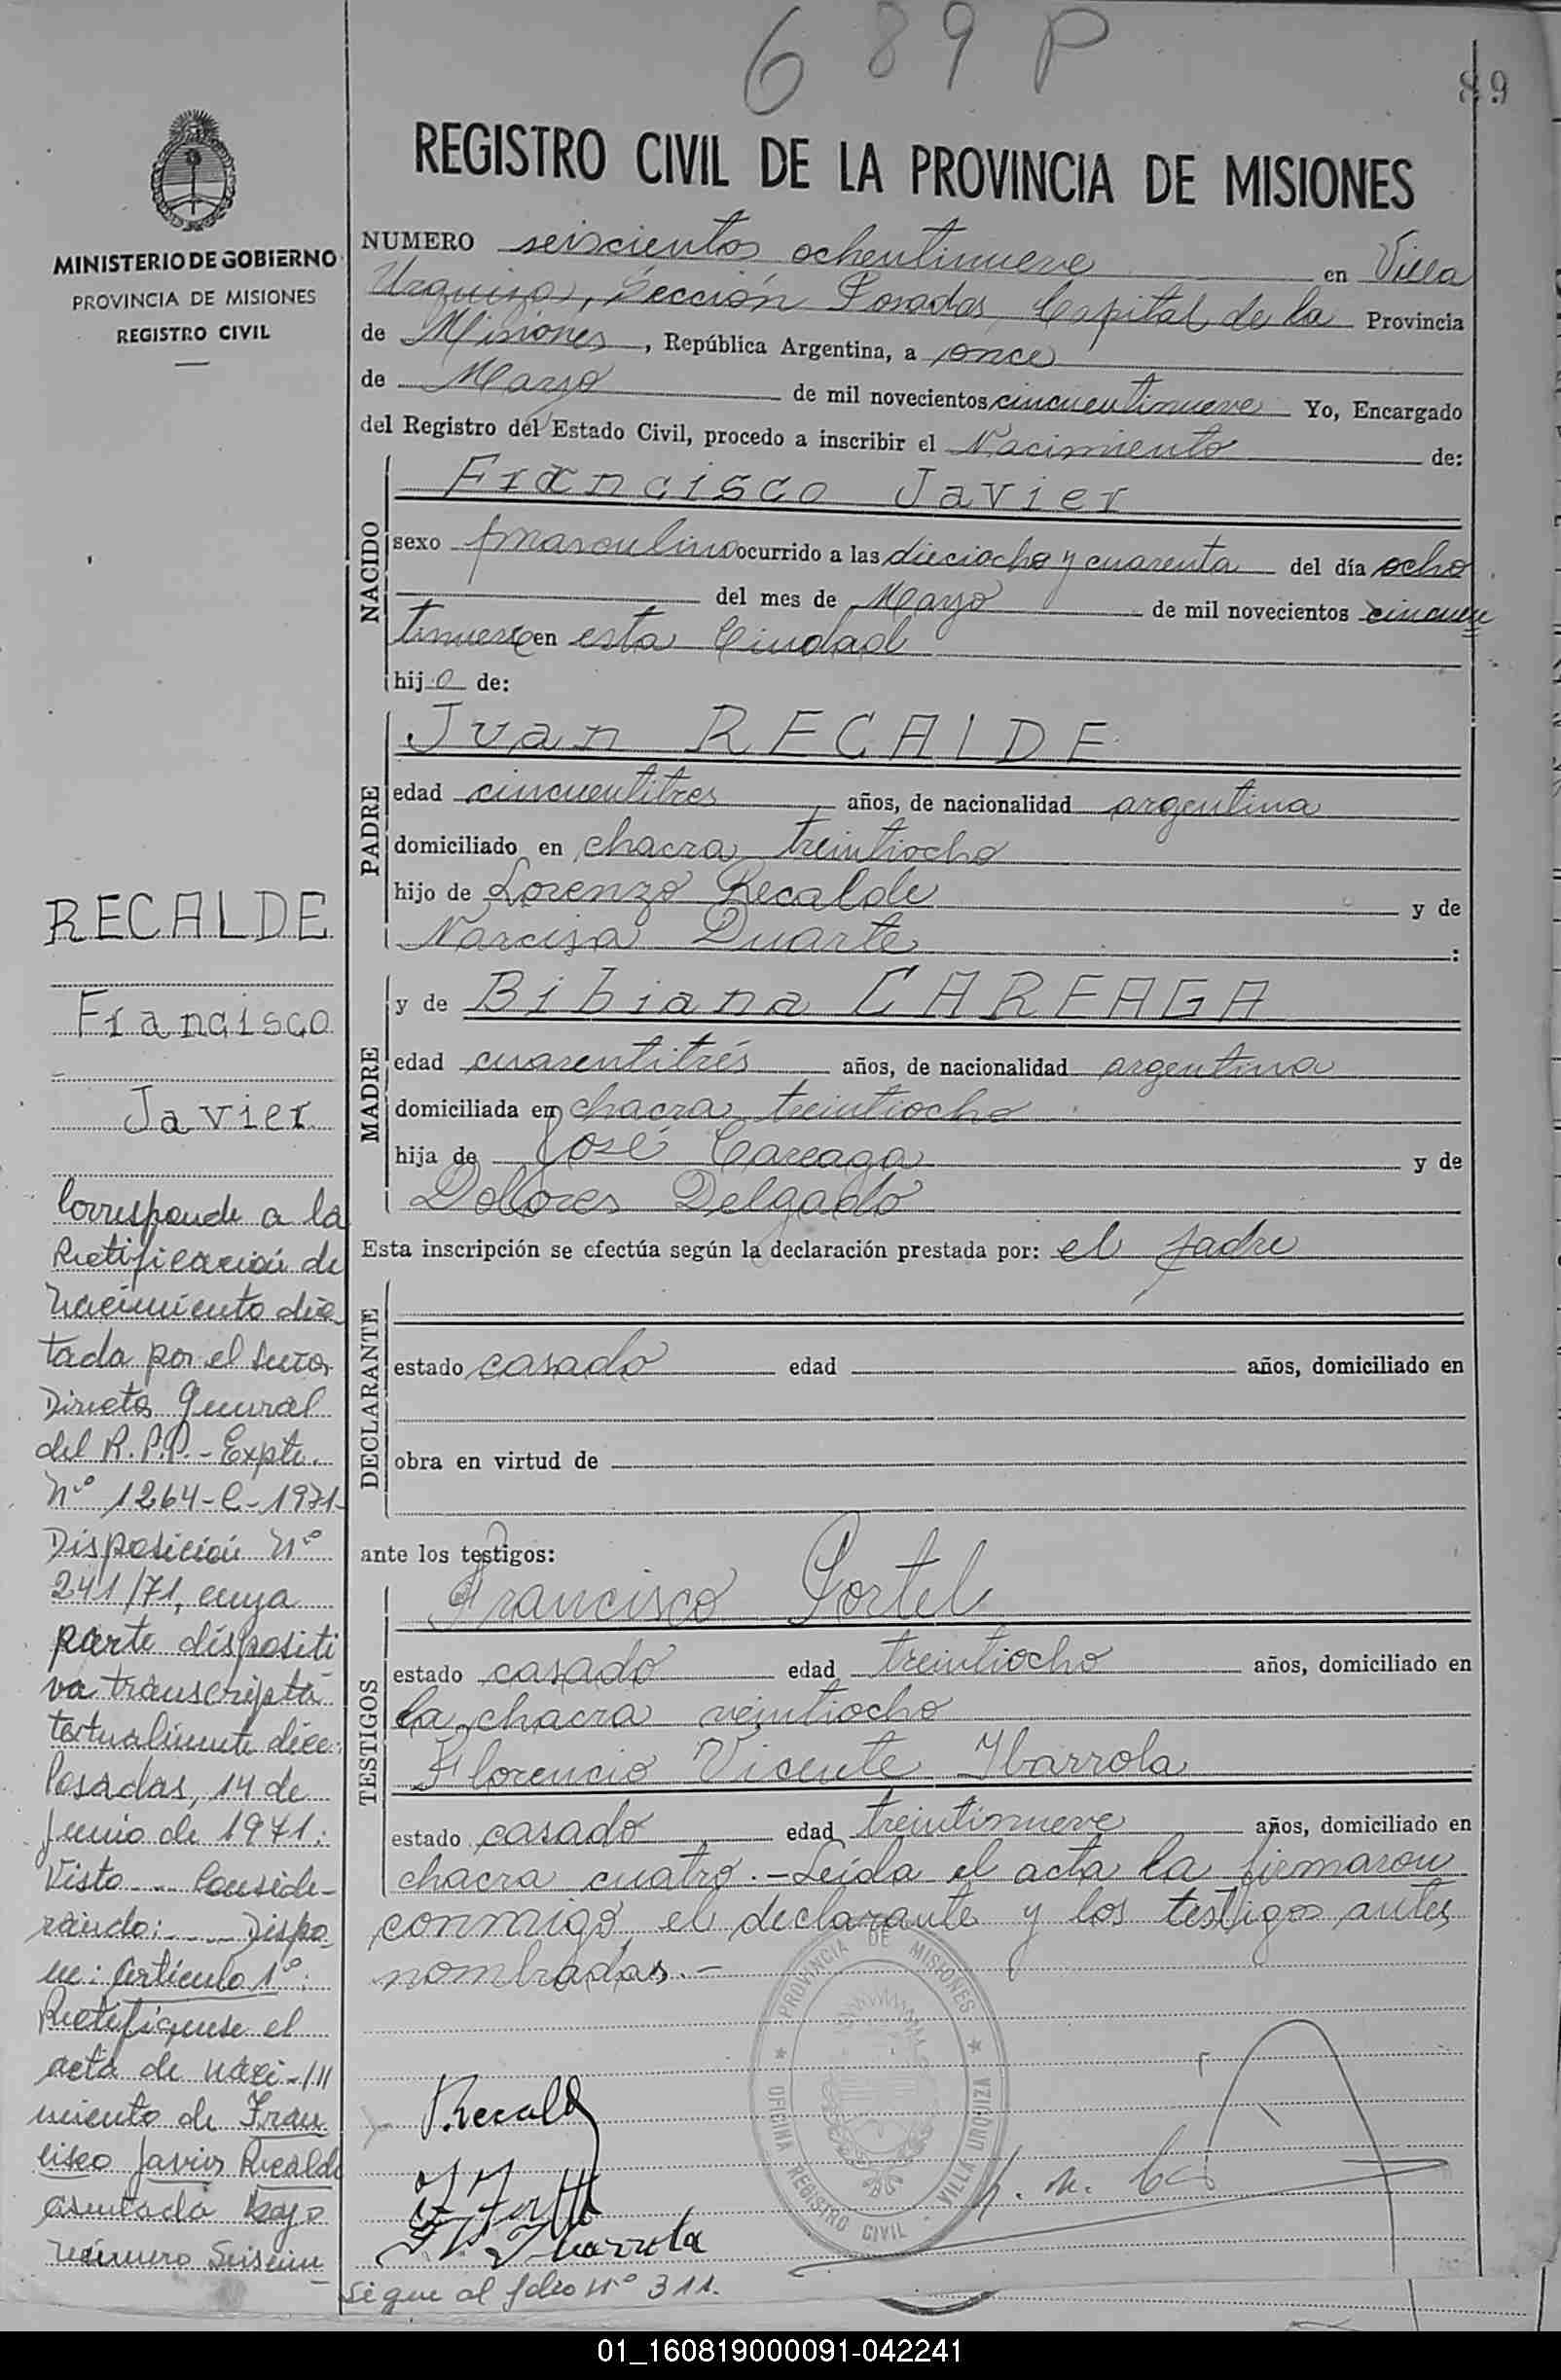 689 P
89
MINISTERIO DE GOBIERNO
PROVINCIA DE MISIONES
REGISTRO CIVIL
REGISTRO CIVIL DE LA PROVINCIA DE MISIONES
NUMERO seiscientos ochentinueve en Villa
Urquiza, Sección Posadas, Capital de la Provincia
de Misiones, República Argentina, a once
de Mayo de mil novecientos cincuentinueve Yo, Encargado
del Registro del Estado Civil, procedo a inscribir el Nacimiento de:
NACIDO
Francisco Javier
sexo masculino ocurrido a las dieciocho y cuarenta del día ocho
del mes de Mayo de mil novecientos cincuen
tinueve en esta Ciudad
hijo de:
PADRE
Juan RECALDE
edad cincuentitres años, de nacionalidad argentina
domiciliado en chacra treintiocho
hijo de Lorenzo Recalde y de
Narcisa Duarte :
MADRE
y de Bibiana CAREAGA
edad cuarentitrés años, de nacionalidad argentina
domiciliada en chacra treintiocho
hija de José Careaga y de
Dolores Delgado
Esta inscripción se efectúa según la declaración prestada por: el padre
DECLARANTE
estado casado edad años, domiciliado en
obra en virtud de
ante los testigos:
TESTIGOS
Francisco Portel
estado casado edad treintiocho años, domiciliado en
la chacra veintiocho
Florencio Vicente Ibarrola
estado casado edad treintinueve años, domiciliado en
chacra cuatro.- Leída el acta la firmaron
conmigo, el declarante y los testigos antes
nombrados.-
PROVINCIA DE MISIONES
OFICINA REGISTRO CIVIL - VILLA URQUIZA
Recalde
F. V. Ibarrola
Sigue al folio Nº 311.
RECALDE
Francisco
Javier
Corresponde a la
Rectificación de
Nacimiento dic
tada por el Señor
Director General
del R.P.P.- Expte.
Nº 1264-C-1971-
Disposición Nº
241/71, cuya
parte dispositi
va transcripta
textualmente dice:
Posadas, 14 de
Junio de 1971:
Visto... Conside-
rando:..... Dispo-
ne: Artículo 1º:
Rectifíquese el
acta de naci-///
miento de Fran
cisco Javier Recalde
asentada bajo
número Seiscien
01_160819000091-042241